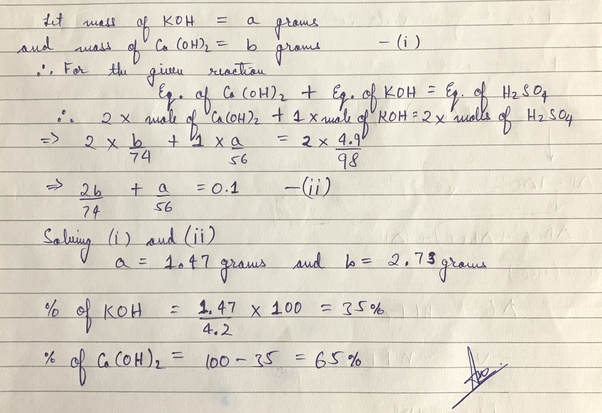 Let mass of KOH = a grams
and mass of Ca(OH)2 = b grams - (i)
∴ For the given reaction
Eq. of Ca(OH)2 + Eq. of KOH = Eq. of H2SO4
∴ 2 × mole of Ca(OH)2 + 1 × mole of KOH = 2 × molls of H2SO4
=> 2 × b/74 + 1 × a/56 = 2 × 4.9/98
=> 2b/74 + a/56 = 0.1 - (ii)
Solving (i) and (ii)
a = 1.47 grams and b = 2.73 grams
% of KOH = 1.47/4.2 × 100 = 35%
% of Ca(OH)2 = 100 - 35 = 65%